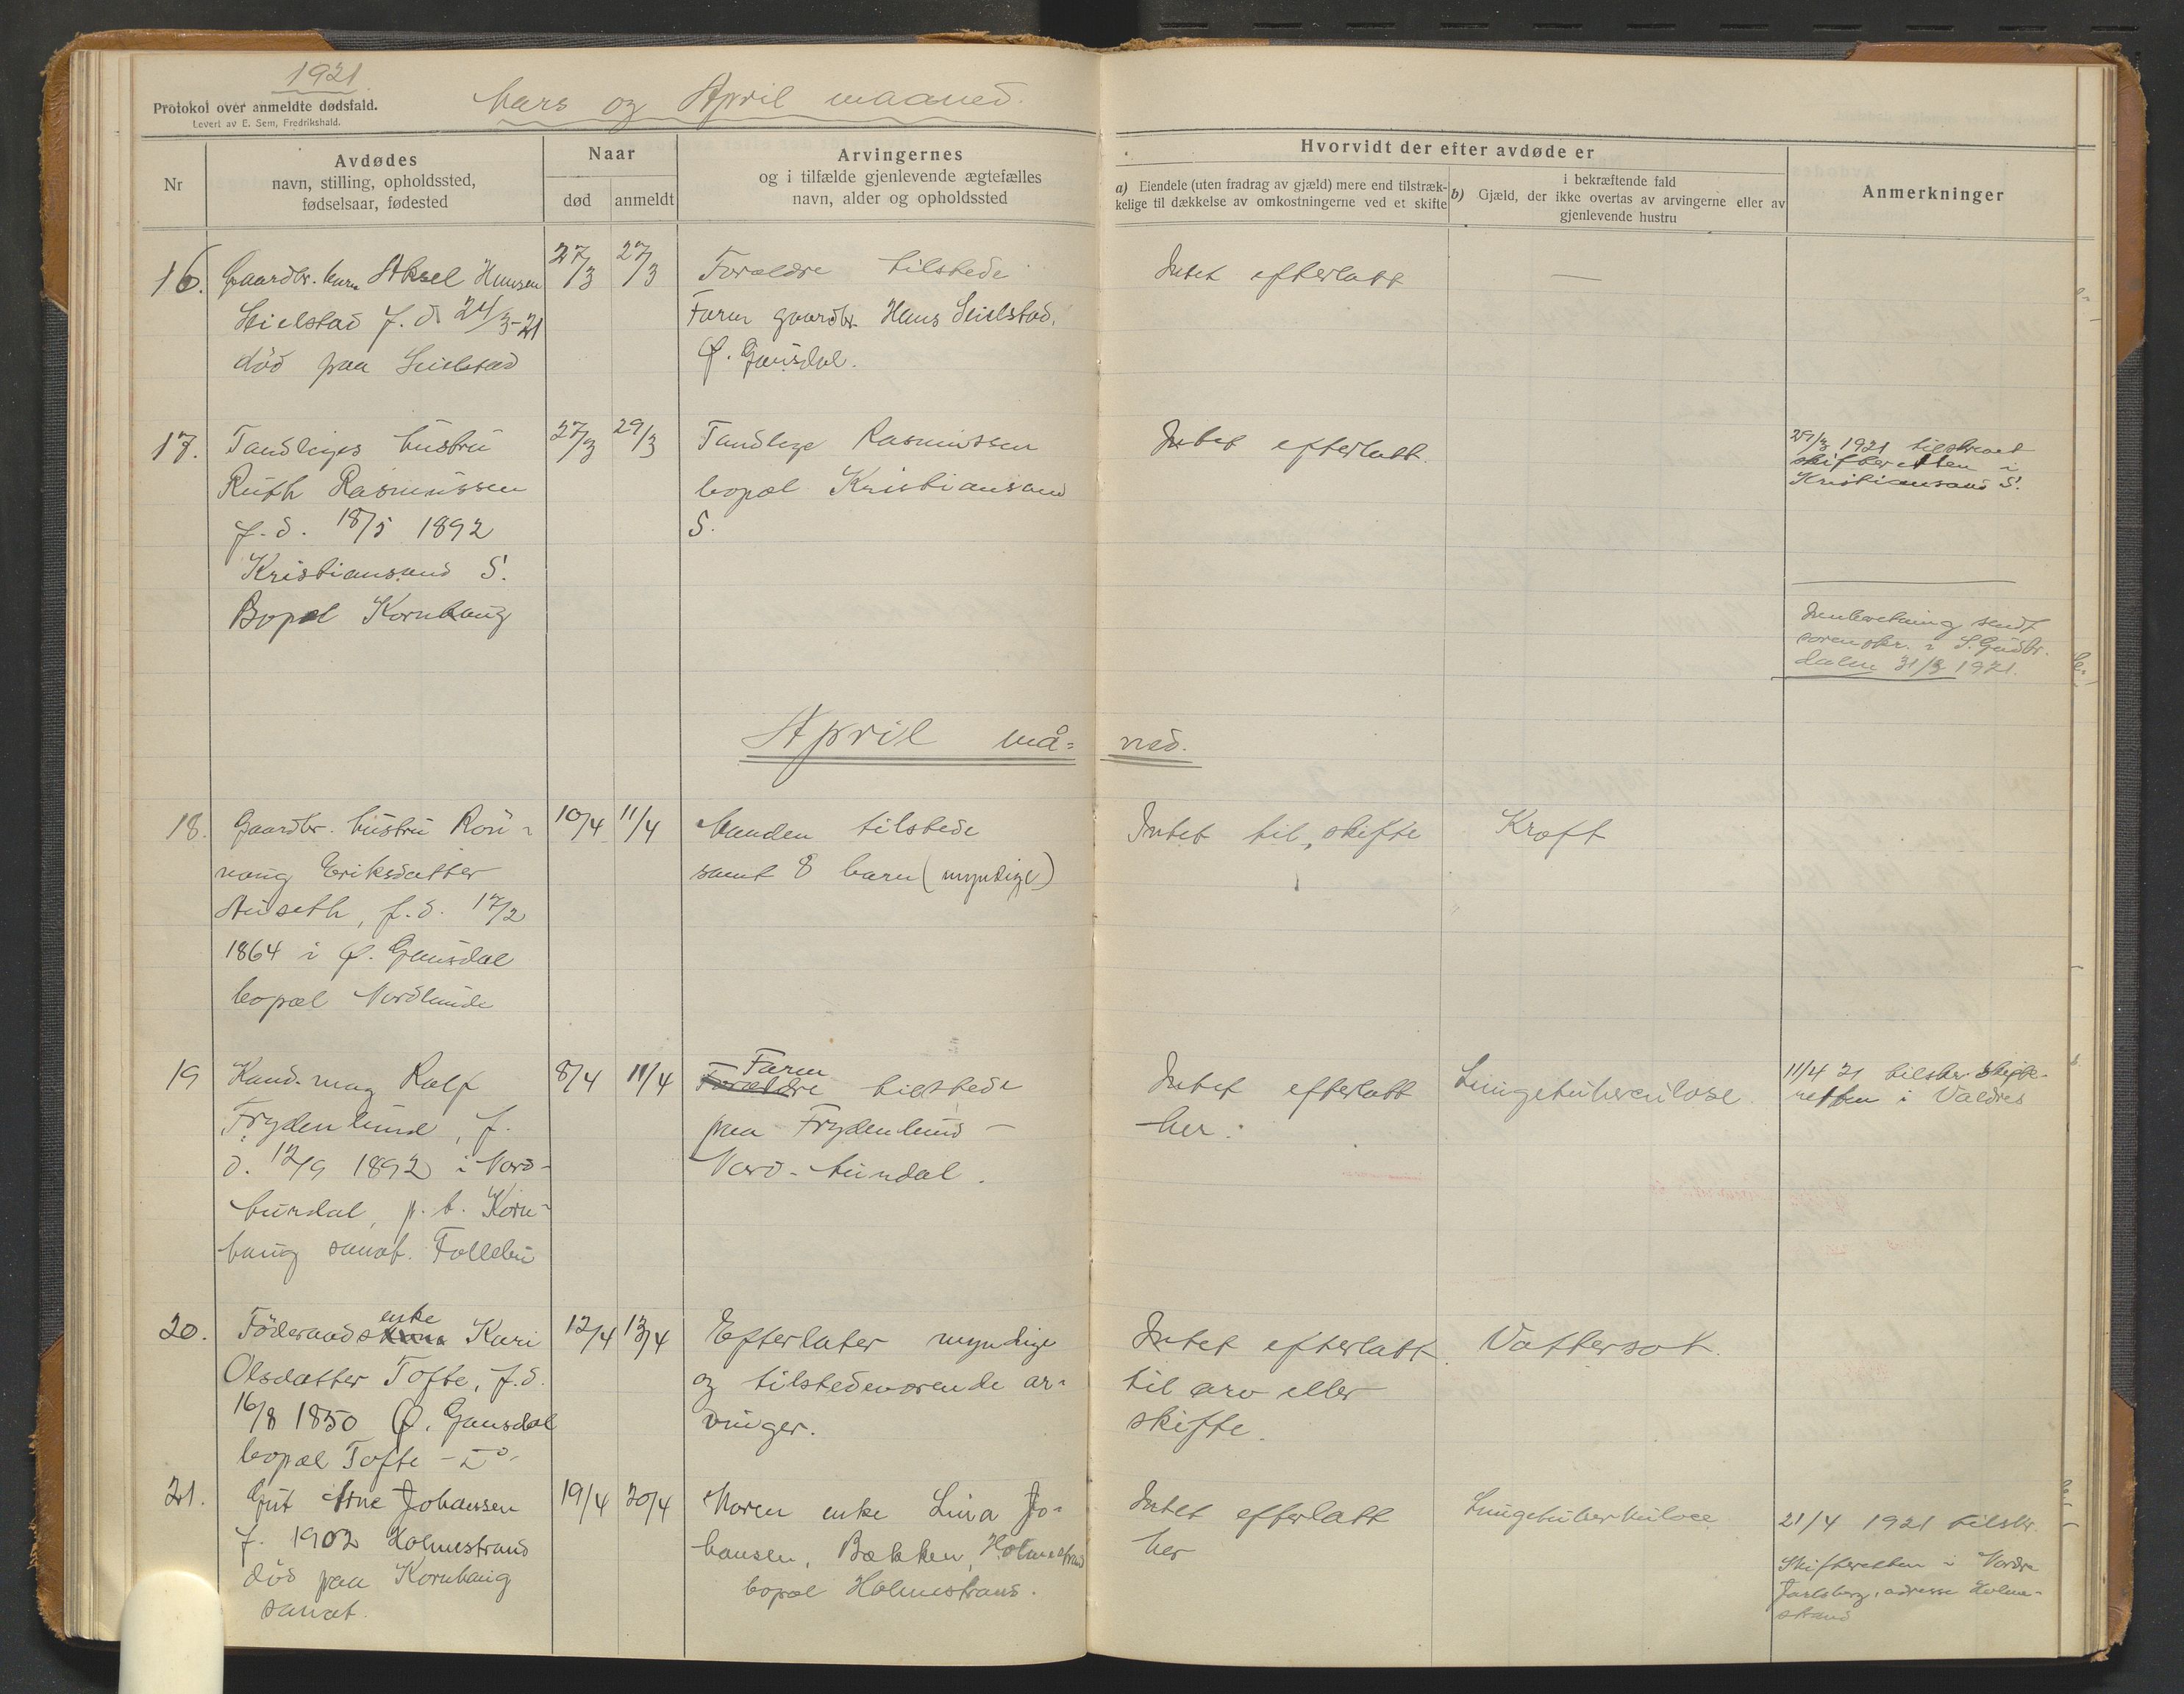 1921
Protokol over anmeldte dødsfald.
Levert av E. Sem, Fredrikshald.
Mars og April maaned.
Nr
Avdødes
navn, stilling, opholdssted,
fødselsaar, fødested
Naar
død
anmeldt
Arvingernes
og i tilfælde gjenlevende ægtefælles
navn, alder og opholdssted
Hvorvidt der efter avdøde er
a) Eiendele (uten fradrag av gjæld) mere end tilstræk-
kelige til dækkelse av omkostningerne ved et skifte
i bekræftende fald
b) Gjæld, der ikke overtas av arvingerne eller av
gjenlevende hustru
Anmerkninger
16.
Gaardbr. barn Aksel Hansen
Seielstad f. d. 24/3-21
död paa Seielstad
27/3
27/3
Forældre tilstede
Faren gaardbr. Hans Seielstad,
Ø. Gausdal.
Intet efterlatt
—
17.
Tandlæges hustru
Ruth Rasmussen
f. d. 18/5 1892
Kristiansand S.
Bopæl Kornhaug
27/3
29/3
Tandlæge Rasmussen
bopæl Kristiansand
S.
Intet efterlatt.
29/3 1921 tilskrevet
skifteretten i
Kristiansand S.
Innberetning sendt
sorenskr. i S. Gudbr.
dalen 31/3 1921.
April må=
ned.
18.
Gaardbr. hustru Rön-
naug Eriksdatter
Auseth, f. d. 17/2
1864 i Ø. Gausdal
bopæl Nordlunde
10/4
11/4
Manden tilstede
samt 8 barn (myndige)
Intet til skifte
Kræft
19
Kand. mag Ralf
Frydenlund, f.
d. 12/9 1892 i Nord-
Aurdal, p. t. Korn-
haug sanat. Follebu
8/4
11/4
Faren
Forældre tilstede
paa Frydenlund -
Nord-Aurdal.
Intet efterlatt
her.
Lungetuberculose.
11/4 21 tilskr. skifte-
retten i Valdres
20.
enke
Föderaadskone Kari
Olsdatter Tofte, f. d.
16/8 1850 Ø. Gausdal
bopæl Tofte - do -
12/4
13/4
Efterlater myndige
og tilstedeværende ar-
vinger.
Intet efterlatt
til arv eller
skifte.
Vattersot.
21.
Gut Arne Johansen
f. 1902 Holmestrand
död paa Kornhaug
sanat.
19/4
20/4
Moren enke Lina Jo-
hansen, Bakken, Holmestrand
bopæl Holmestrand.
Intet efterlatt
her
Lungetuberkulose
21/4 1921 tilskr.
Skifteretten i Nordre
Jarlsberg, adresse Holme-
strand